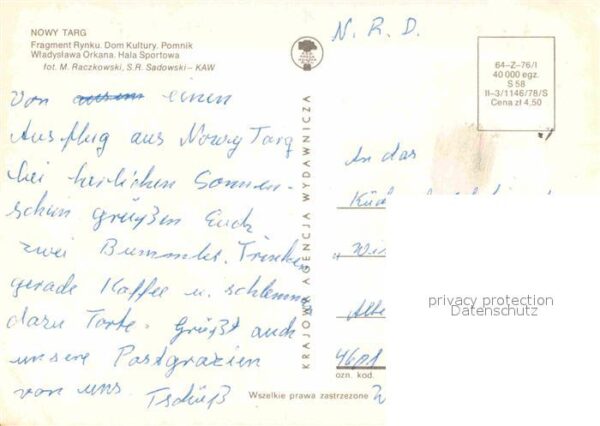 NOWY TARG
Fragment Rynku. Dom Kultury. Pomnik
Władysława Orkana. Hala Sportowa
fot. M. Raczkowski, S.R. Sadowski – KAW
Von einen
Ausflug aus Nowy Targ
bei herlichen Sonnen-
schein grüßen Euch
zwei Bummler. Trinken
gerade Kaffee u. schlemmen
dazu Torte. Grüßt auch
unsere Postgrazien
von uns. Tschüß
KRAJOWA AGENCJA WYDAWNICZA
Wszelkie prawa zastrzeżone
N. R. D.
64–Z–76/I
40 000 egz.
S 58
II–3/1146/78/S
Cena zł 4,50
An das
4601
ozn. kod.
privacy protection
Datenschutz